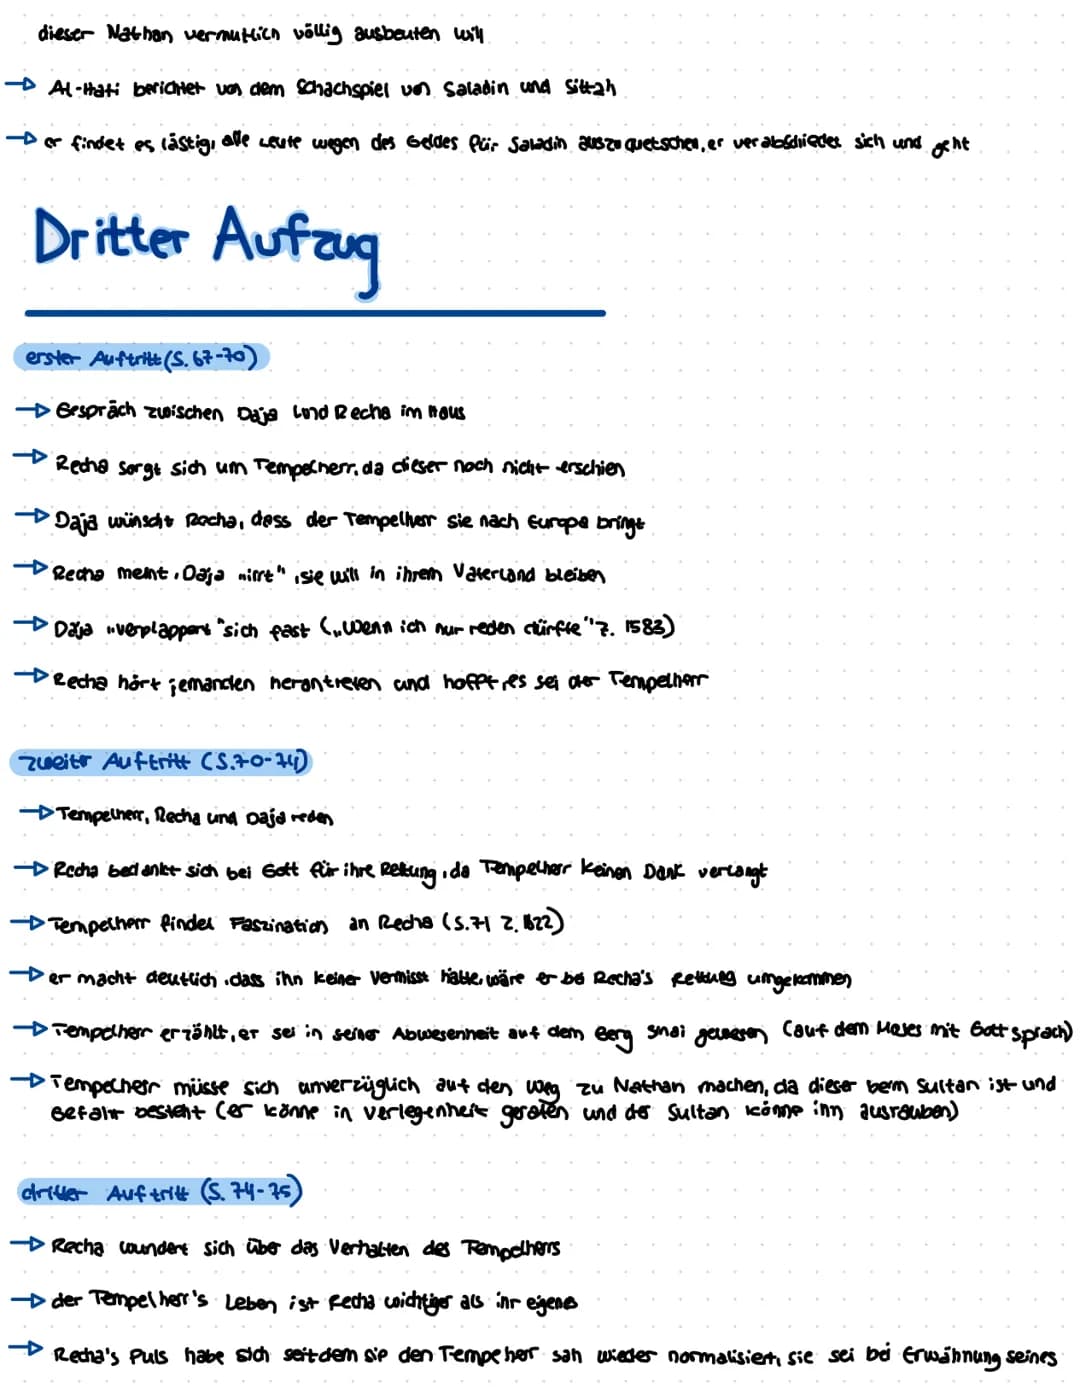 dieser Nathan vermutlich völlig ausbeuten will
→ Al-Hafi berichtet von dem Schachspiel von Saladin und Sittah
→ er findet es lästig, alle Leute wegen des Geldes für Saladin auszuquetschen, er verabschiedet sich und geht
Dritter Aufzug
erster Auftritt (S. 67-70)
→ Gespräch zwischen Daja und Recha im Haus
→ Recha sorgt sich um Tempelherr, da dieser noch nicht erschien
→ Daja wünscht Recha, dass der Tempelherr sie nach Europa bringt
→ Recha meint, Daja „irrt", sie will in ihrem Vaterland bleiben
→ Daja „verplappert" sich fast („Wenn ich nur reden dürfte" Z. 1583)
→ Recha hört jemanden herantreten und hofft, es sei der Tempelherr
zweiter Auftritt (S. 70-74)
→ Tempelherr, Recha und Daja reden
→ Recha bedankt sich bei Gott für ihre Rettung, da Tempelherr keinen Dank verlangt
→ Tempelherr findet Faszination an Recha (S. 71 Z. 1622)
→ er macht deutlich, dass ihn keiner vermisst hätte, wäre er bei Recha's Rettung umgekommen
→ Tempelherr erzählt, er sei in seiner Abwesenheit auf dem Berg Sinai gewesen (auf dem Moses mit Gott sprach)
→ Tempelherr müsse sich unverzüglich auf den Weg zu Nathan machen, da dieser beim Sultan ist und
Gefahr besteht (er könne in Verlegenheit geraten und der Sultan könne ihn ausrauben)
dritter Auftritt (S. 74-75)
→ Recha wundert sich über das Verhalten des Tempelherrs
→ der Tempelherr's Leben ist Recha wichtiger als ihr eigenes
→ Recha's Puls habe sich seitdem sie den Tempelherr sah wieder normalisiert, sie sei bei Erwähnung seines